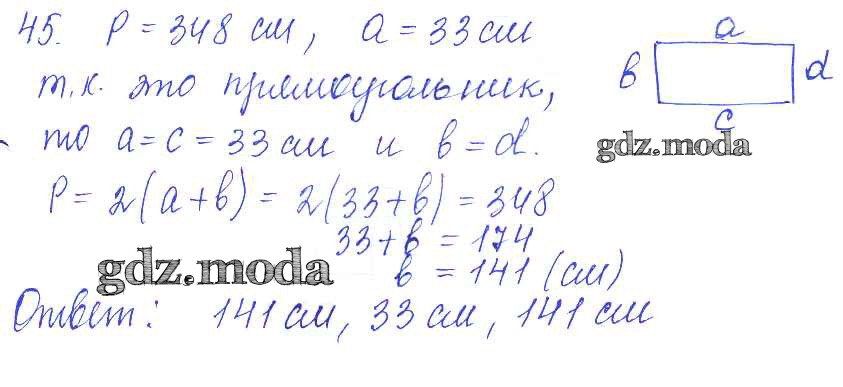 45. P = 348 см, a = 33 см
a
b
d
c
т.к. это прямоугольник,
то a = c = 33 см и b = d.
gdz.moda
P = 2(a+b) = 2(33+b) = 348
33+b = 174
gdz.moda
b = 141 (см)
Ответ: 141 см, 33 см, 141 см